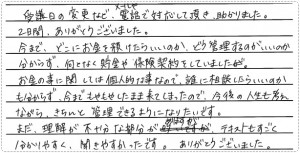 メールや
受講日の変更など、電話で対応して頂き、助かりました。
2日間、ありがとうございました。
今まで、どこにお金を預けたらいいのか、どう管理するのがいいのか
分からず、何となく貯金や保険契約をしていましたが。
お金の事に関しては個人的な事なので、誰に相談したらいいのか
も分からず、今までもやもやしたまま来てしまったので、今後の人生も考え
ながら、きちんと管理できるようになりたいです。
まだ、理解が不十分な部分が ありますが、テキストもすごく
分かりやすく、聞きやすかったです。ありがとうございました。